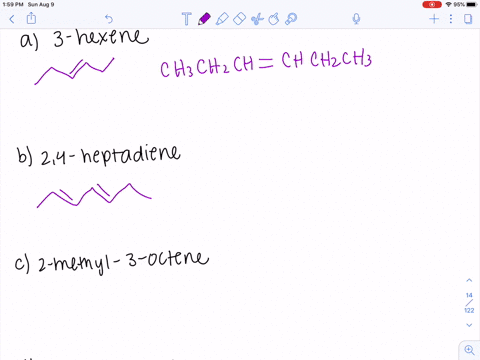 1:59 PM Sun Aug 9
95%
a) 3-hexene
CH3CH2CH=CHCH2CH3
b) 2,4-heptadiene
c) 2-methyl-3-octene
14
/
122